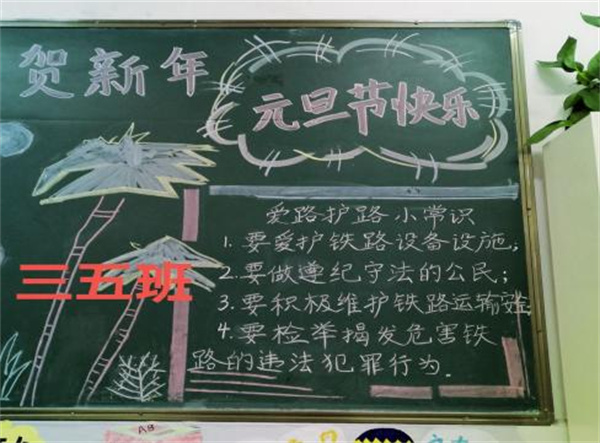 贺新年
元旦节快乐
爱路护路小常识
1.要爱护铁路设备设施;
2.要做遵纪守法的公民;
3.要积极维护铁路运输安
4.要检举揭发危害铁
路的违法犯罪行为.
三五班
AB